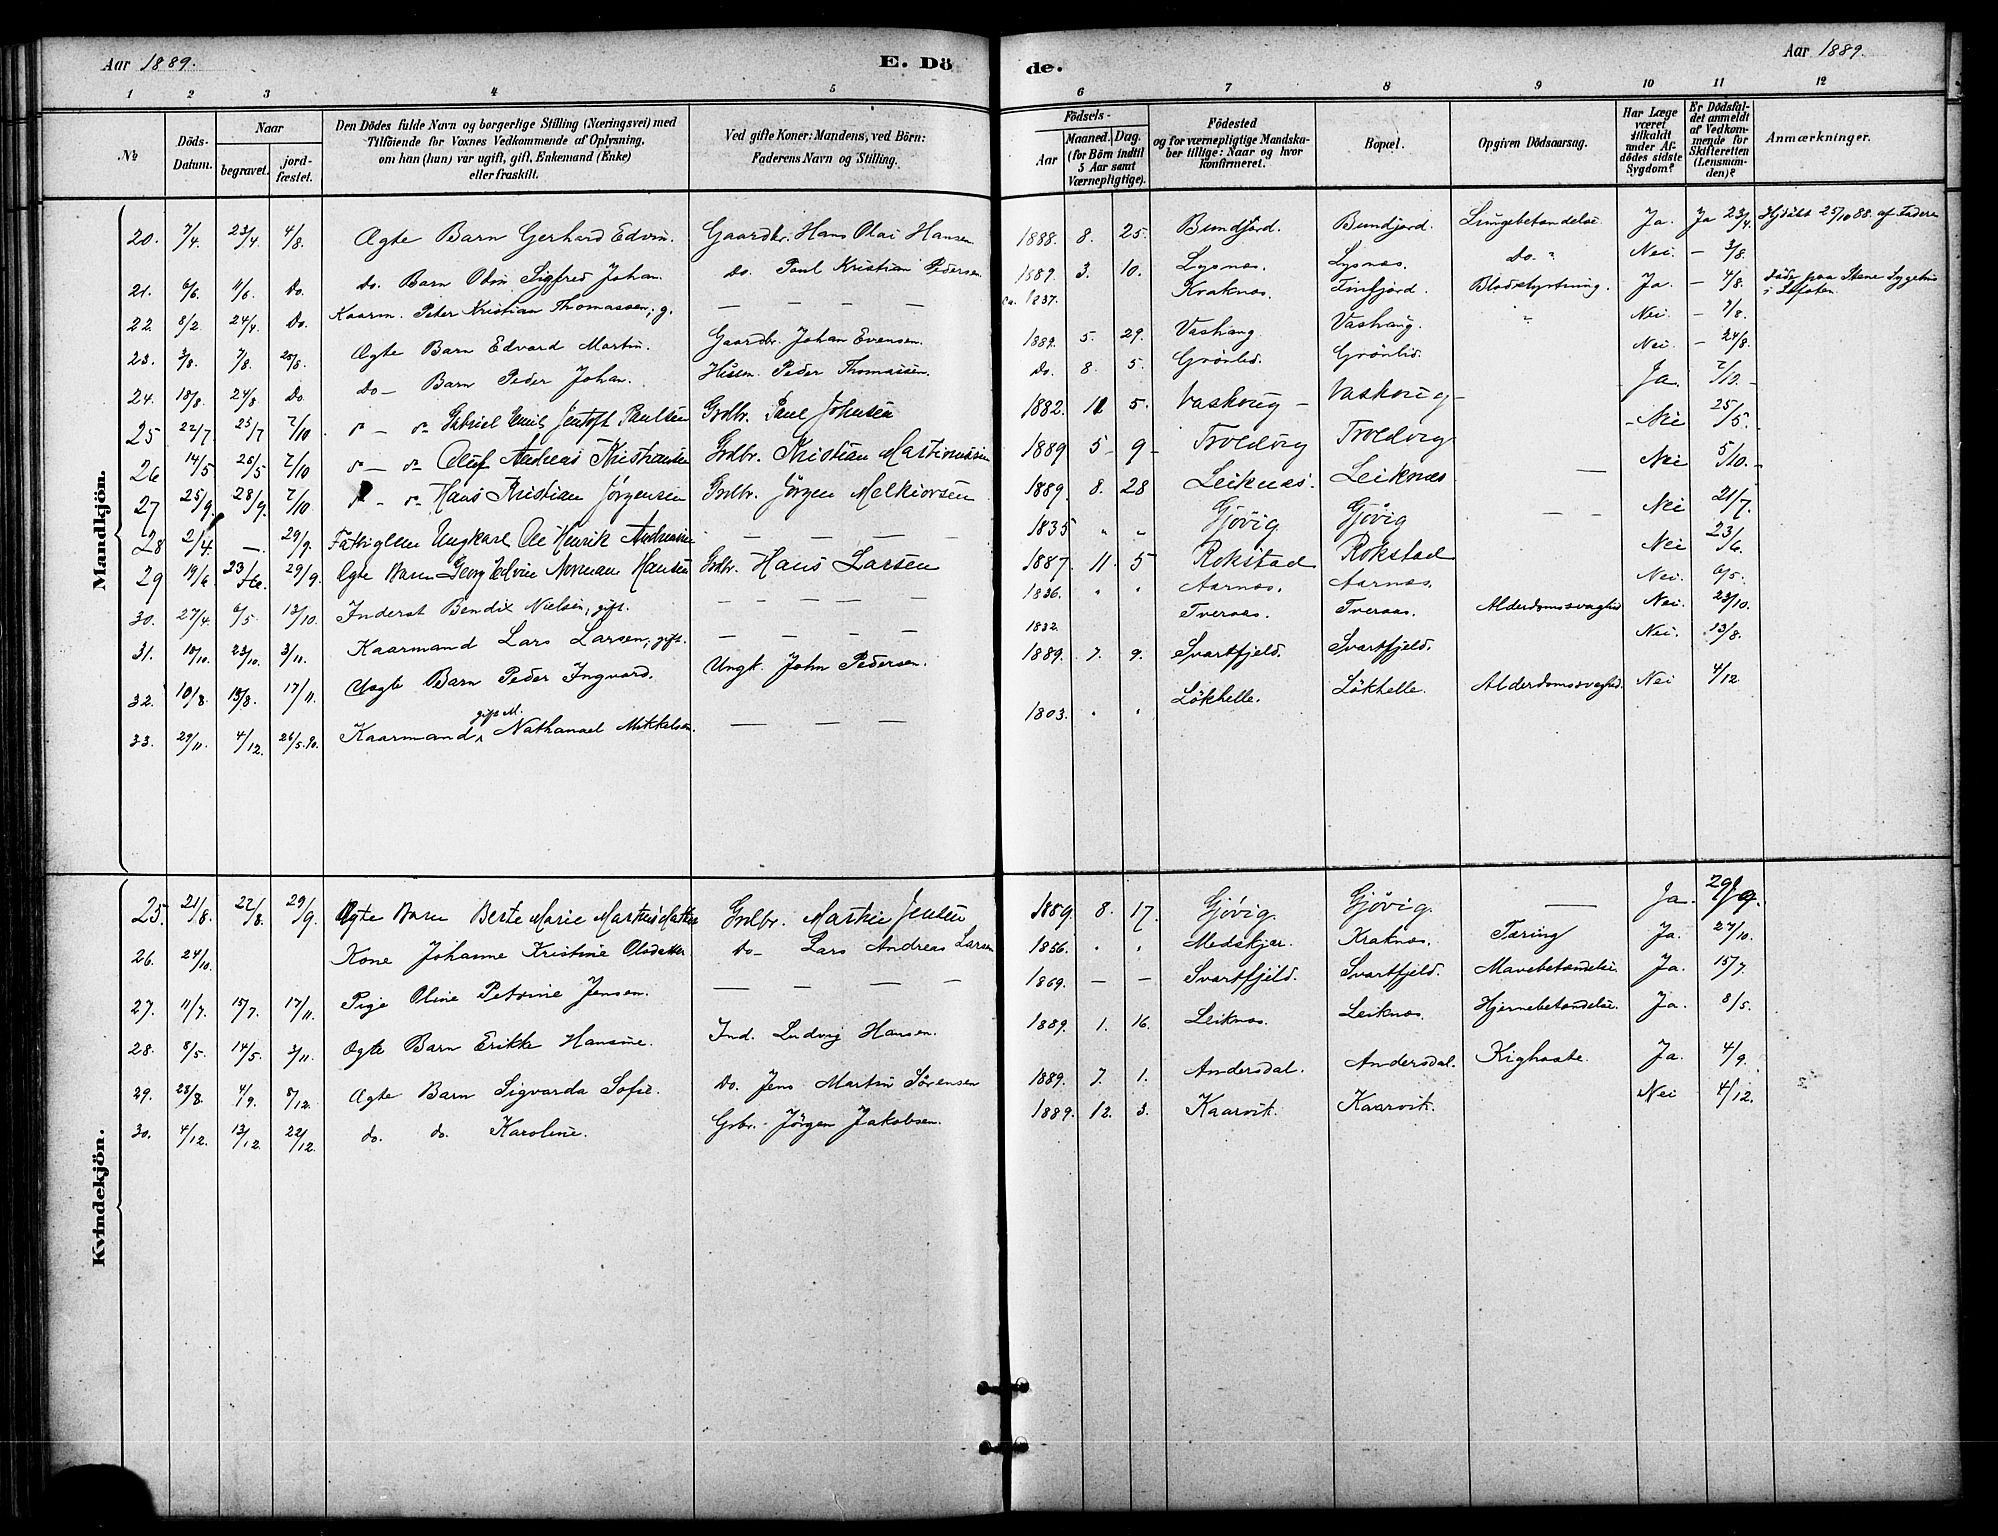 Aar 1889.
E. Dö
de.
Aar 1889.
1 2 3 4 5 6 7 8 9 10 11 12
No
Döds-Datum.
Naar
begravet.
jord-fæstet.
Den Dödes fulde Navn og borgerlige Stilling (Næringsvei) med
Tilföiende for Voxnes Vedkommende af Oplysning,
om han (hun) var ugift, gift, Enkemand (Enke)
eller fraskilt.
Ved gifte Koner: Mandens, ved Börn:
Faderens Navn og Stilling.
Födsels-
Aar
Maaned. Dag.
(for Börn indtil
5 Aar samt
Værnepligtige).
Födested
og for værnepligtige Mandska-
ber tillige: Naar og hvor
konfirmeret.
Bopæl.
Opgiven Dödsaarsag.
Har Læge
været
tilkaldt
under Af-
dödes sidste
Sygdom?
Er Dödsfal-
det anmeldt
af Vedkom-
mende for
Skifteretten
(Lensman-
den)?
Anmærkninger.
Mandkjön.
20. 7/4. 23/4 4/8. Ægte Barn Gerhard Edvin. Gaardbr. Hans Olai Hansen 1888. 8. 25. Bundfjord. Bundfjord. Lungebetændelse. Ja. Ja 23/4. Hjdöbt 25/10 88. af Faderen
21. 6/6. 11/6 Do. Do. Barn Odin Sigfred Johan. Do. Paul Kristian Pedersen 1889. 3. 10. Lysnæs. Lysnæs. Do. " Nei. — 3/8.
22. 8/2. 24/4. Do. Kaarm. Peter Kristian Thomassen, g. — — — — ca. 1837. Kraknæs. Finfjord. Blodstyrtning. Ja. — 4/8. Döde paa Stene Sygehus i Lofoten.
23. 3/8. 7/8. 25/8. Ægte Barn Edvard Martin. Gaardbr. Johan Evensen. 1889. 5. 29. Vashaug. Vashaug. " Nei. — 7/8.
24. 18/8. 24/8 Do. Do— Barn Peder Johan. Husm. Peder Thomassen. Do. 8. 5. Grönlid. Grönlid. Nei. — 24/8.
25 22/7. 25/7 2/10 do — do Gabriel Emil Jentoft Paulsen Grdbr. Paul Johnsen 1882. 11 5. Vaskoug — Vaskoug — Ja. 2/10. —
26 14/5 26/5 2/10 do — do Oluf Andreas Kristiansen Grdbr. Kristian Martinussen 1889 5 — 9 — Troldvig Troldvig — Nei 25/5.
27 25/9. 28/9. 2/10 do — do Hans Kristian Jörgensen Grdbr. Jörgen Melkiorsen 1889. 8. 28 Leiknæs. Leiknæs — Nei 5/10. —
28 2/4. — . 29/9. Fattiglem Ungkarl Ole Henrik Andreassen — — — — 1835 " " Gjövig Gjövig — Nei 21/7.
29 19/6 23/6. 29/9. Ægte Barn Georg Edvin Norman Hansen Grdbr. Hans Larsen 1887. 11. 5 Rokstad Rokstad Nei 23/6.
30. 27/4. 6/5. 13/10. Inderst Bendix Nielsen, gift. — — — — 1836. " " Aarnæs. Aarnæs. Nei. 6/5.
31. 10/10. 23/10. 3/11. Kaarmand Lars Larsen, gift. — — — — 1832. Tveraas. Tveraas. Alderdomssvaghed Nei. 23/10.
32. 10/8. 13/8. 17/11. Uægte Barn Peder Ingvard. Ungk. John Pedersen. 1889. 7. 9. Svartfjeld. Svartfjeld. Nei. 13/8.
33. 29/11. 4/12. 26/5.90. Kaarmand, gift M. Nathanael Mikkelsen. — — — 1803. " " Lökhelle. Lökhelle. Alderdomssvaghed. Nei 4/12
Kvindekjön.
25 21/8. 22/8. 29/9. Ægte Barn Berte Marie Grdbr. Jensen 1889. 8. 17. Gjövig. Gjövig. — Ja. 29/9.
26. 24/10. Kone Johanne Kristine Olsdatter Do— Lars Andreas Larsen 1856. " " Medskjær. Kraknæs. Tæring Ja. 27/10.
27. 11/7. 15/7. 17/11. Pige Oline Petrine Jensen. — — — — 1869. — — Svartfjeld. Svartfjeld. Mavebetændelse. Ja. 15/7.
28. 8/5. 14/5. 3/11. Ægte Barn Erikke Hansine. Ind. Ludvig Hansen. 1889. 1. 16. Leiknæs. Leiknæs. Hjernebetændelse. Ja. 8/5.
29. 28/8. 4/9. 8/12. Ægte Barn Sigvarda Sofie. Do. Jens Martin Sörensen 1889. 7. 1. Andersdal. Andersdal. Kighoste. Ja. 4/9.
30. 4/12. 13/12. 22/12. do. do. Karoline. Grbr. Jörgen Jakobsen. 1889. 12. 3. Kaarvik. Kaarvik. Nei 4/12.